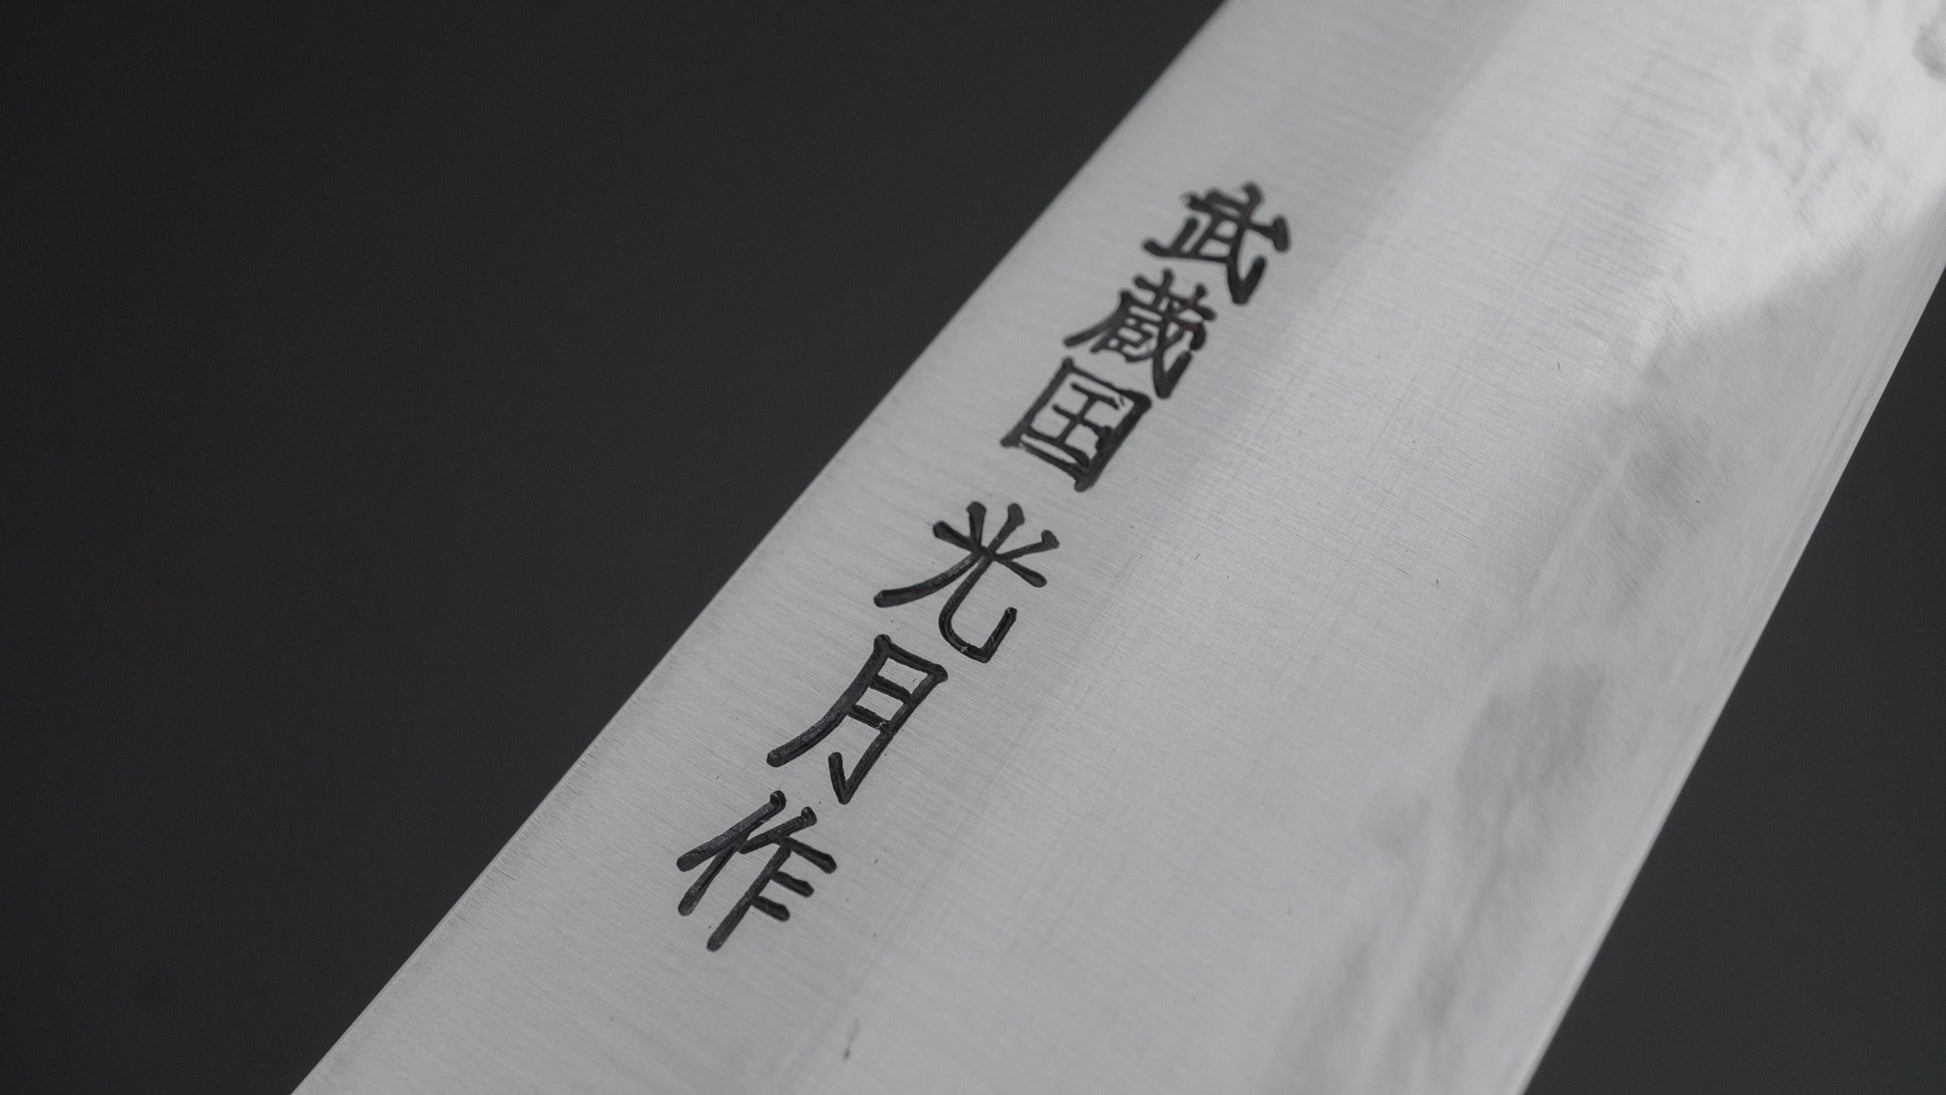 武蔵国光月作